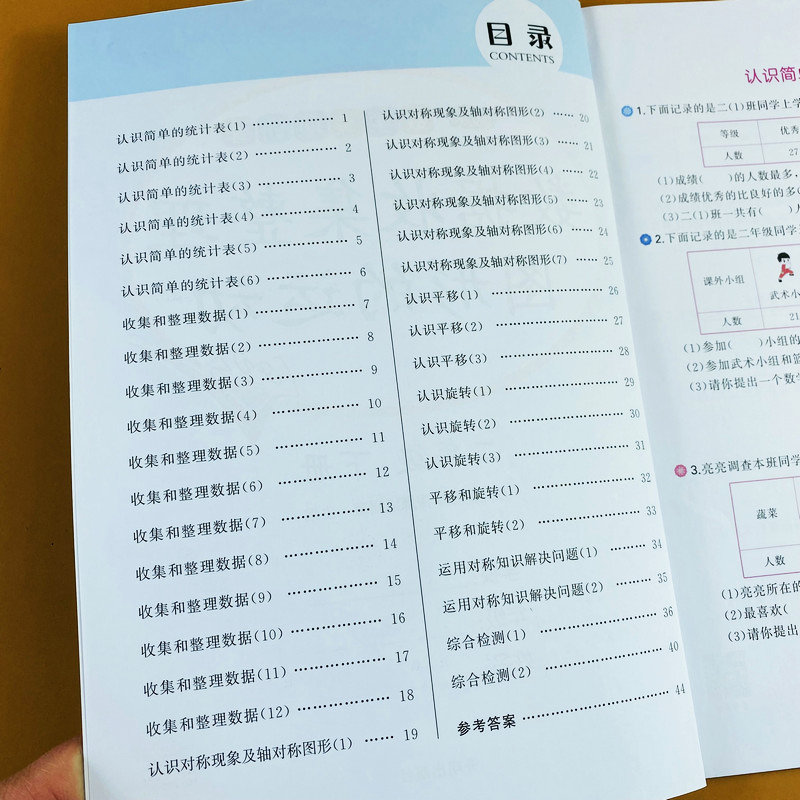 目录
CONTENTS
认识简单的统计表(1) ………………… 1
认识简单的统计表(2) ………………… 2
认识简单的统计表(3) ………………… 3
认识简单的统计表(4) ………………… 4
认识简单的统计表(5) ………………… 5
认识简单的统计表(6) ………………… 6
收集和整理数据(1) ………………… 7
收集和整理数据(2) ………………… 8
收集和整理数据(3) ………………… 9
收集和整理数据(4) ………………… 10
收集和整理数据(5) ………………… 11
收集和整理数据(6) ………………… 12
收集和整理数据(7) ………………… 13
收集和整理数据(8) ………………… 14
收集和整理数据(9) ………………… 15
收集和整理数据(10) ………………… 16
收集和整理数据(11) ………………… 17
收集和整理数据(12) ………………… 18
认识对称现象及轴对称图形(1) …… 19
认识对称现象及轴对称图形(2) …… 20
认识对称现象及轴对称图形(3) …… 21
认识对称现象及轴对称图形(4) …… 22
认识对称现象及轴对称图形(5) …… 23
认识对称现象及轴对称图形(6) …… 24
认识对称现象及轴对称图形(7) …… 25
认识平移(1) ………………… 26
认识平移(2) ………………… 27
认识平移(3) ………………… 28
认识旋转(1) ………………… 29
认识旋转(2) ………………… 30
认识旋转(3) ………………… 31
平移和旋转(1) ………………… 32
平移和旋转(2) ………………… 33
运用对称知识解决问题(1) ……… 34
运用对称知识解决问题(2) ……… 35
综合检测(1) ………………… 36
综合检测(2) ………………… 40
参考答案 ………………… 44
认识简
1.下面记录的是二(1)班同学上学
等级 优秀
人数 27
(1)成绩( )的人数最多,
(2)成绩优秀的比良好的多(
(3)二(1)班一共有( )
2.下面记录的是二年级同学
课外小组 武术小
人数 21
(1)参加( )小组的
(2)参加武术小组和
(3)请你提出一个数学
3.亮亮调查本班同学
蔬菜
人数
(1)亮亮所在的
(2)最喜欢(
(3)请你提出